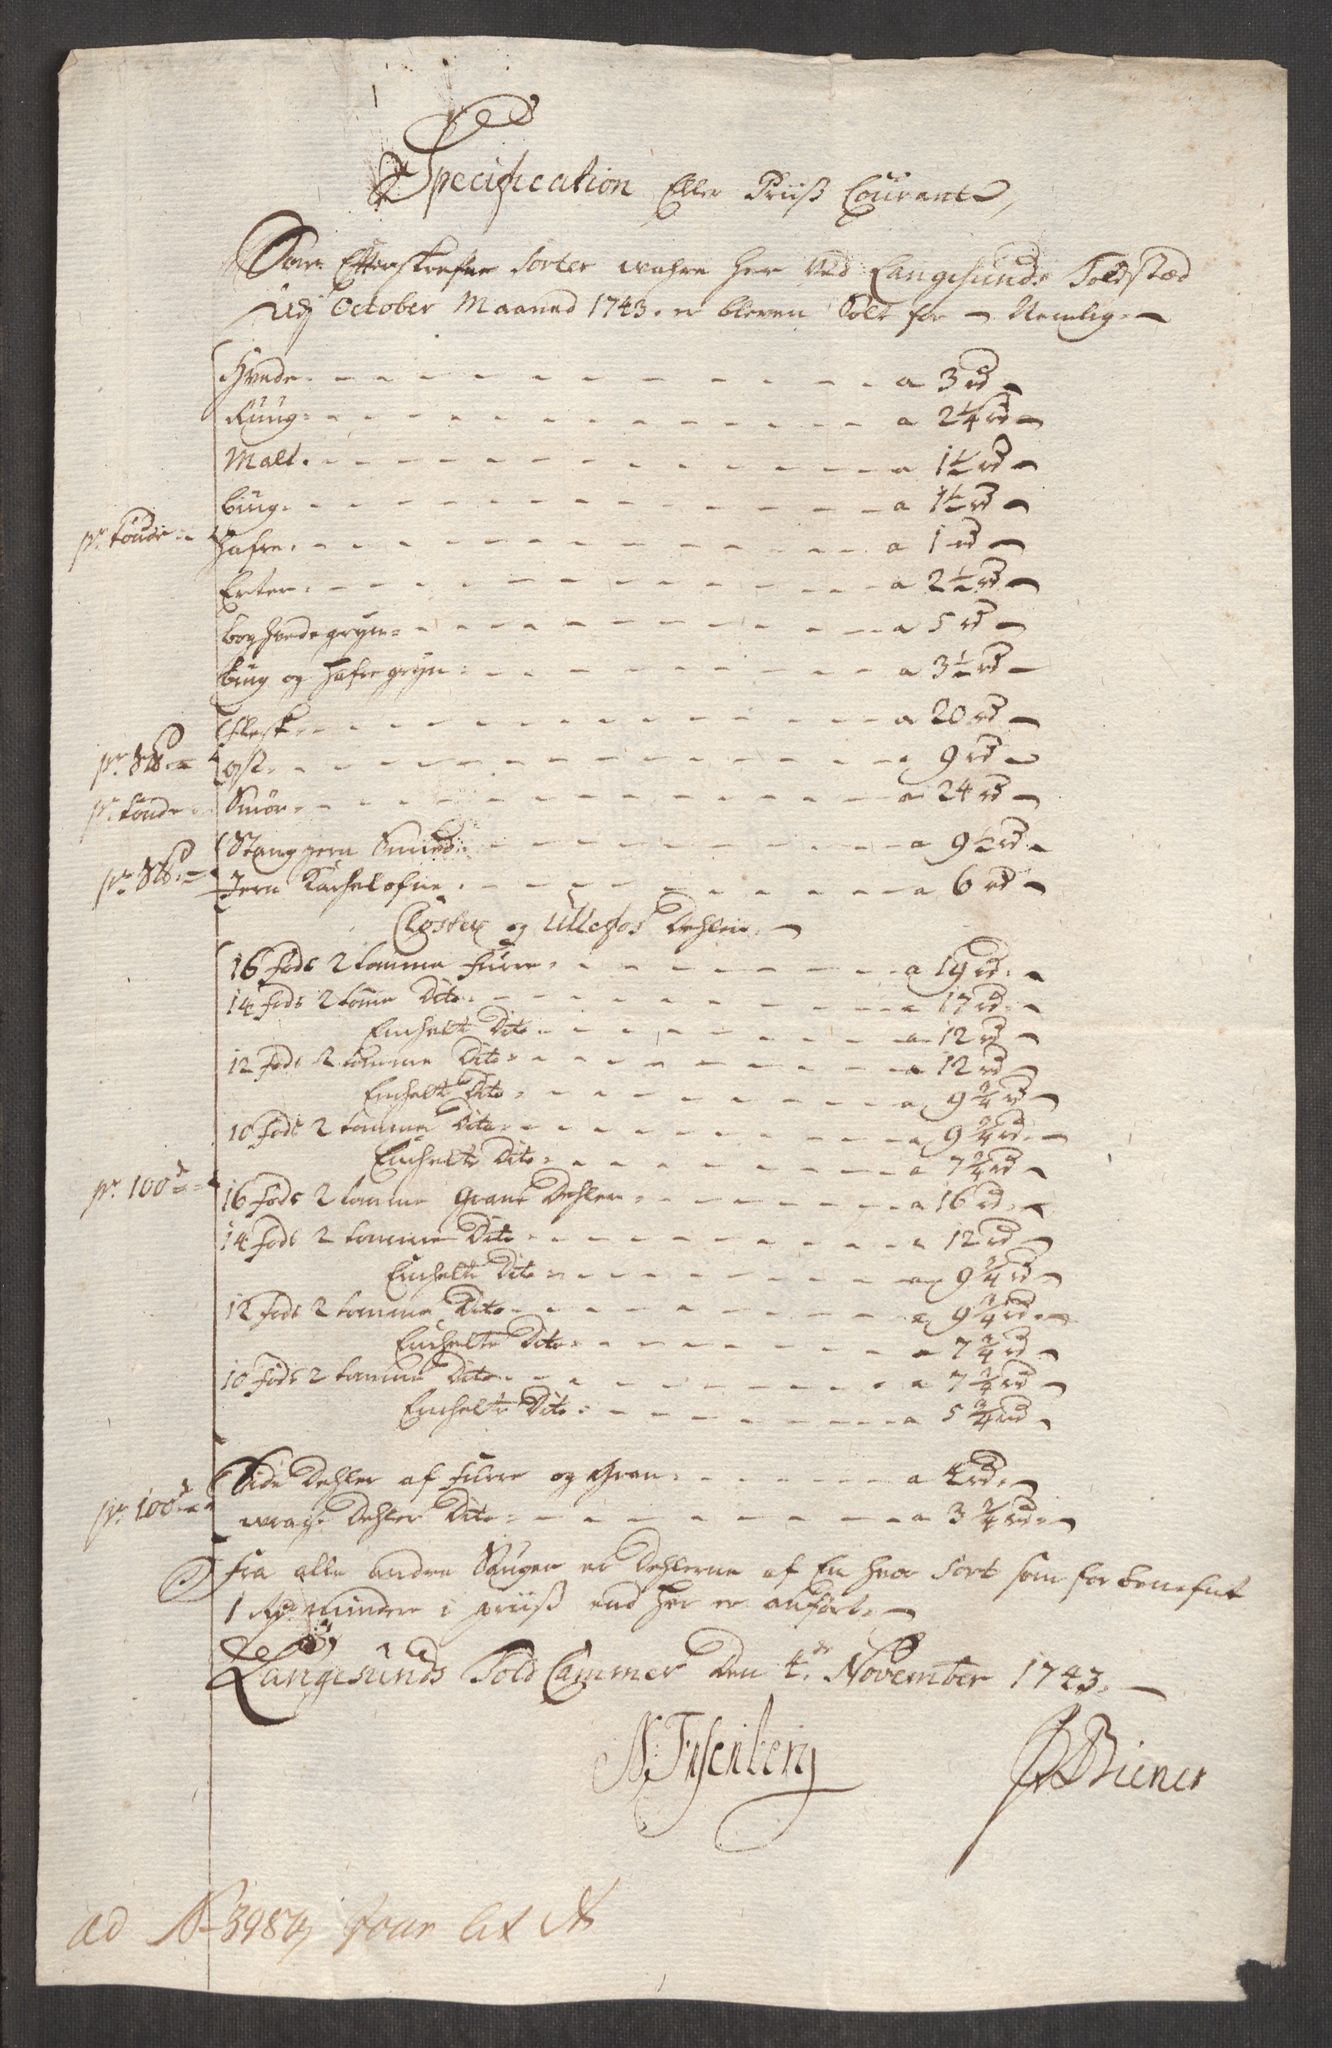 Specification Eller Priiß Courant
Som Efterskrefne Sorter wahre her Ved Langesunds Toldstæd
Udj October Maaned 1743. er bleven Solt for Nemlig.
Hvede. a 3 rd
Rüüg a 2 1/4 rd
Malt. a 1 1/2 rd
biüg. a 1 1/2 rd
pr. tönde hafre. a 1 rd
Erter. a 2 1/2 rd
boghvedegryn a 5 rd
biüg og hafregryn a 3 1/2 rd
flesk a 20 rd
pr. ost a 9 rd
pr. tönde Smör a 24 rd
Stang jern Smied a 9 1/2 rd
pr. Jern Kachelofne a 6 rd
Closter og Ullefos Dehlen
16 fods 2 tomme furre a 19 rd
14 fods 2 tome Dito a 17 rd
Enchelt Dito a 12 rd
12 fods 2 tomme Dito a 12 rd
Enchelt Dito a 9 3/4 rd
10 fods 2 tomme Dito a 9 3/4 rd
Enchelte Dito a 7 3/4 rd
pr. 100de 16 fods 2 tomme Grane Dehler a 16 rd
14 fods 2 tomme Dito a 12 rd
Enchelte Dito a 9 3/4 rd
12 fods 2 tomme Dito a 9 3/4 rd
Enchelte Dito a 7 3/4 rd
10 fods 2 tomme Dito a 7 3/4 rd
Enchelte Dito a 5 3/4 rd
pr. 100de Side Dehler af furre og Gran a 4 rd
wrag Dehler Dito a 3 3/4 rd
Fra alle andre Sauger er Dehlerne af En hver Sort som forbenefnt
1 rdr minder i priiß end her er anfört.
Langesünds Told Cammer Den 4de November 1743.
Biener
ad No 3987